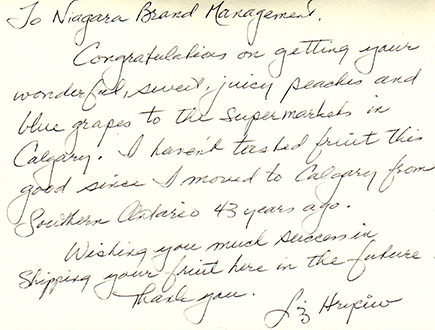 To Niagara Brand Management.
Congratulations on getting your
wonderful, sweet, juicy peaches and
blue grapes to the supermarkets in
Calgary. I haven't tasted fruit this
good since I moved to Calgary from
Southern Ontario 43 years ago.
Wishing you much success in
shipping your fruit here in the future.
Thank you.
Liz